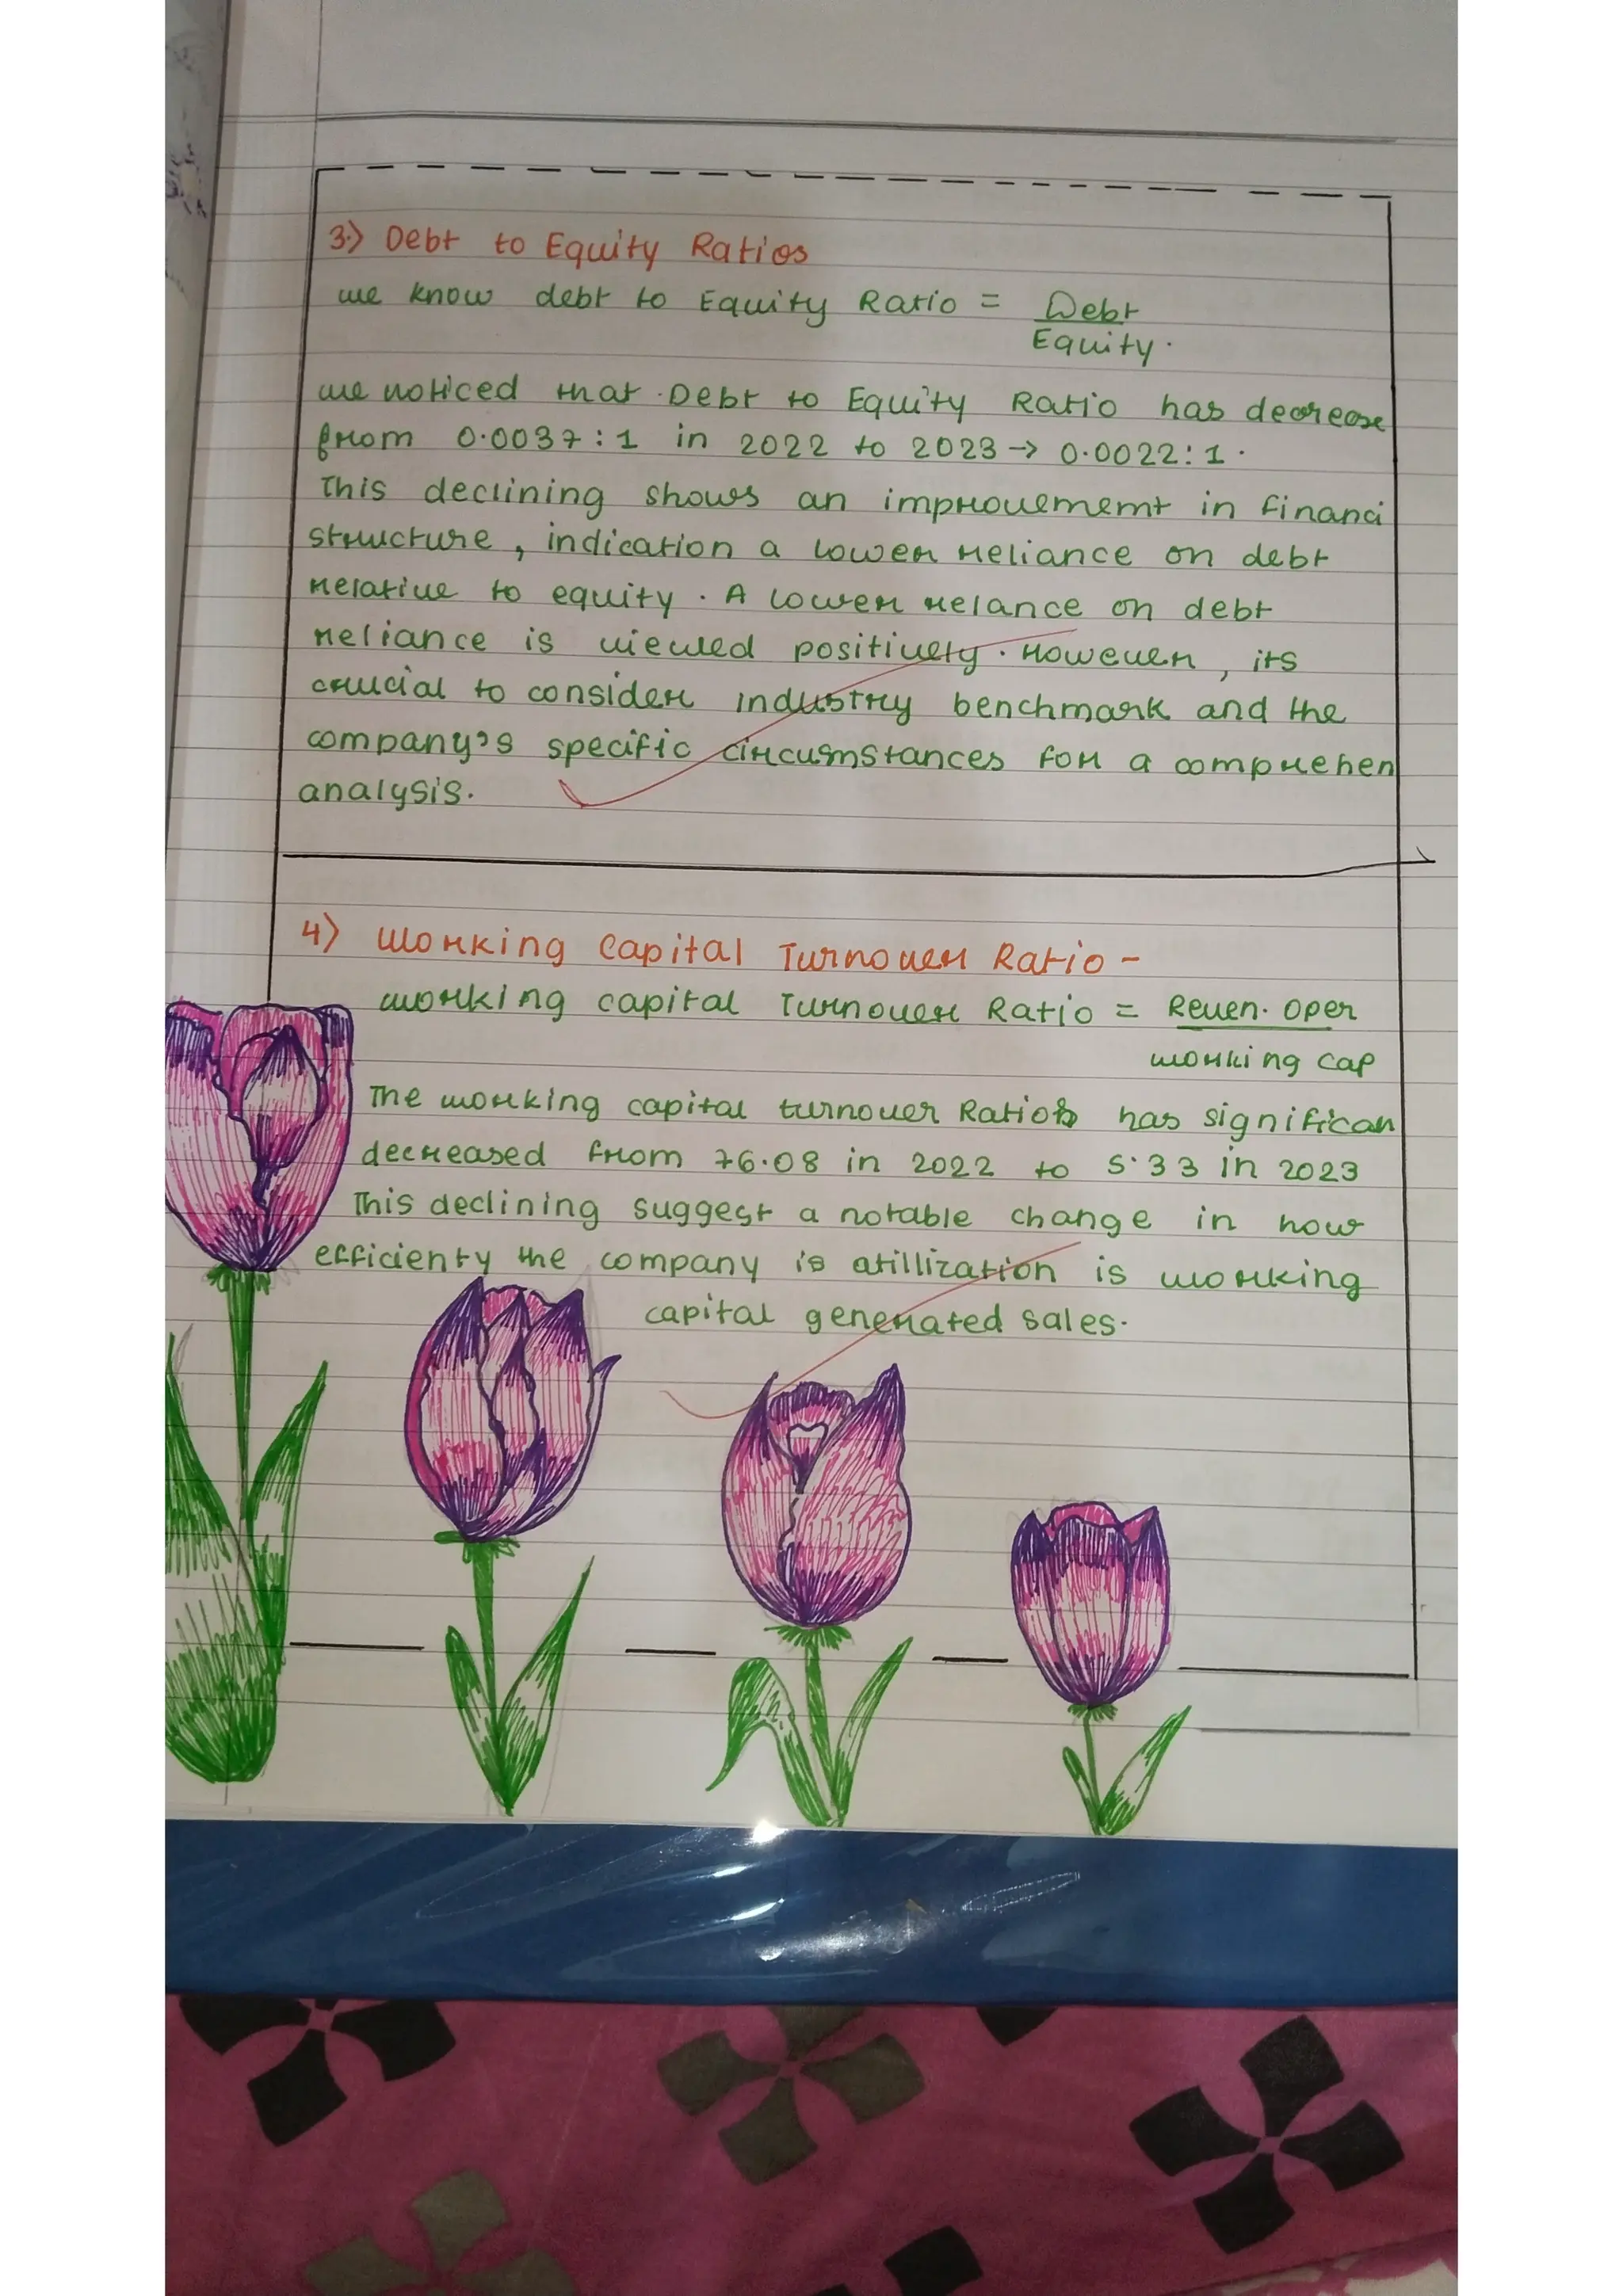 3.) Debt to Equity Ratios
we know debt to Equity Ratio = Debt
Equity.
we noticed that Debt to Equity Ratio has decrease
from 0.0037:1 in 2022 to 2023 → 0.0022:1.
This declining shows an improvememt in financi
structure, indication a lower reliance on debt
relative to equity. A lower relance on debt
reliance is viewed positively. However, its
crucial to consider industry benchmark and the
company's specific circumstances for a comprehen
analysis.
4) Working Capital Turnover Ratio -
working capital Turnover Ratio = Reven. oper
working cap
The working capital turnover Ratio has significan
decreased from 76.08 in 2022 to 5.33 in 2023
This declining suggest a notable change in how
efficienty the company is atillization is working
capital generated sales.